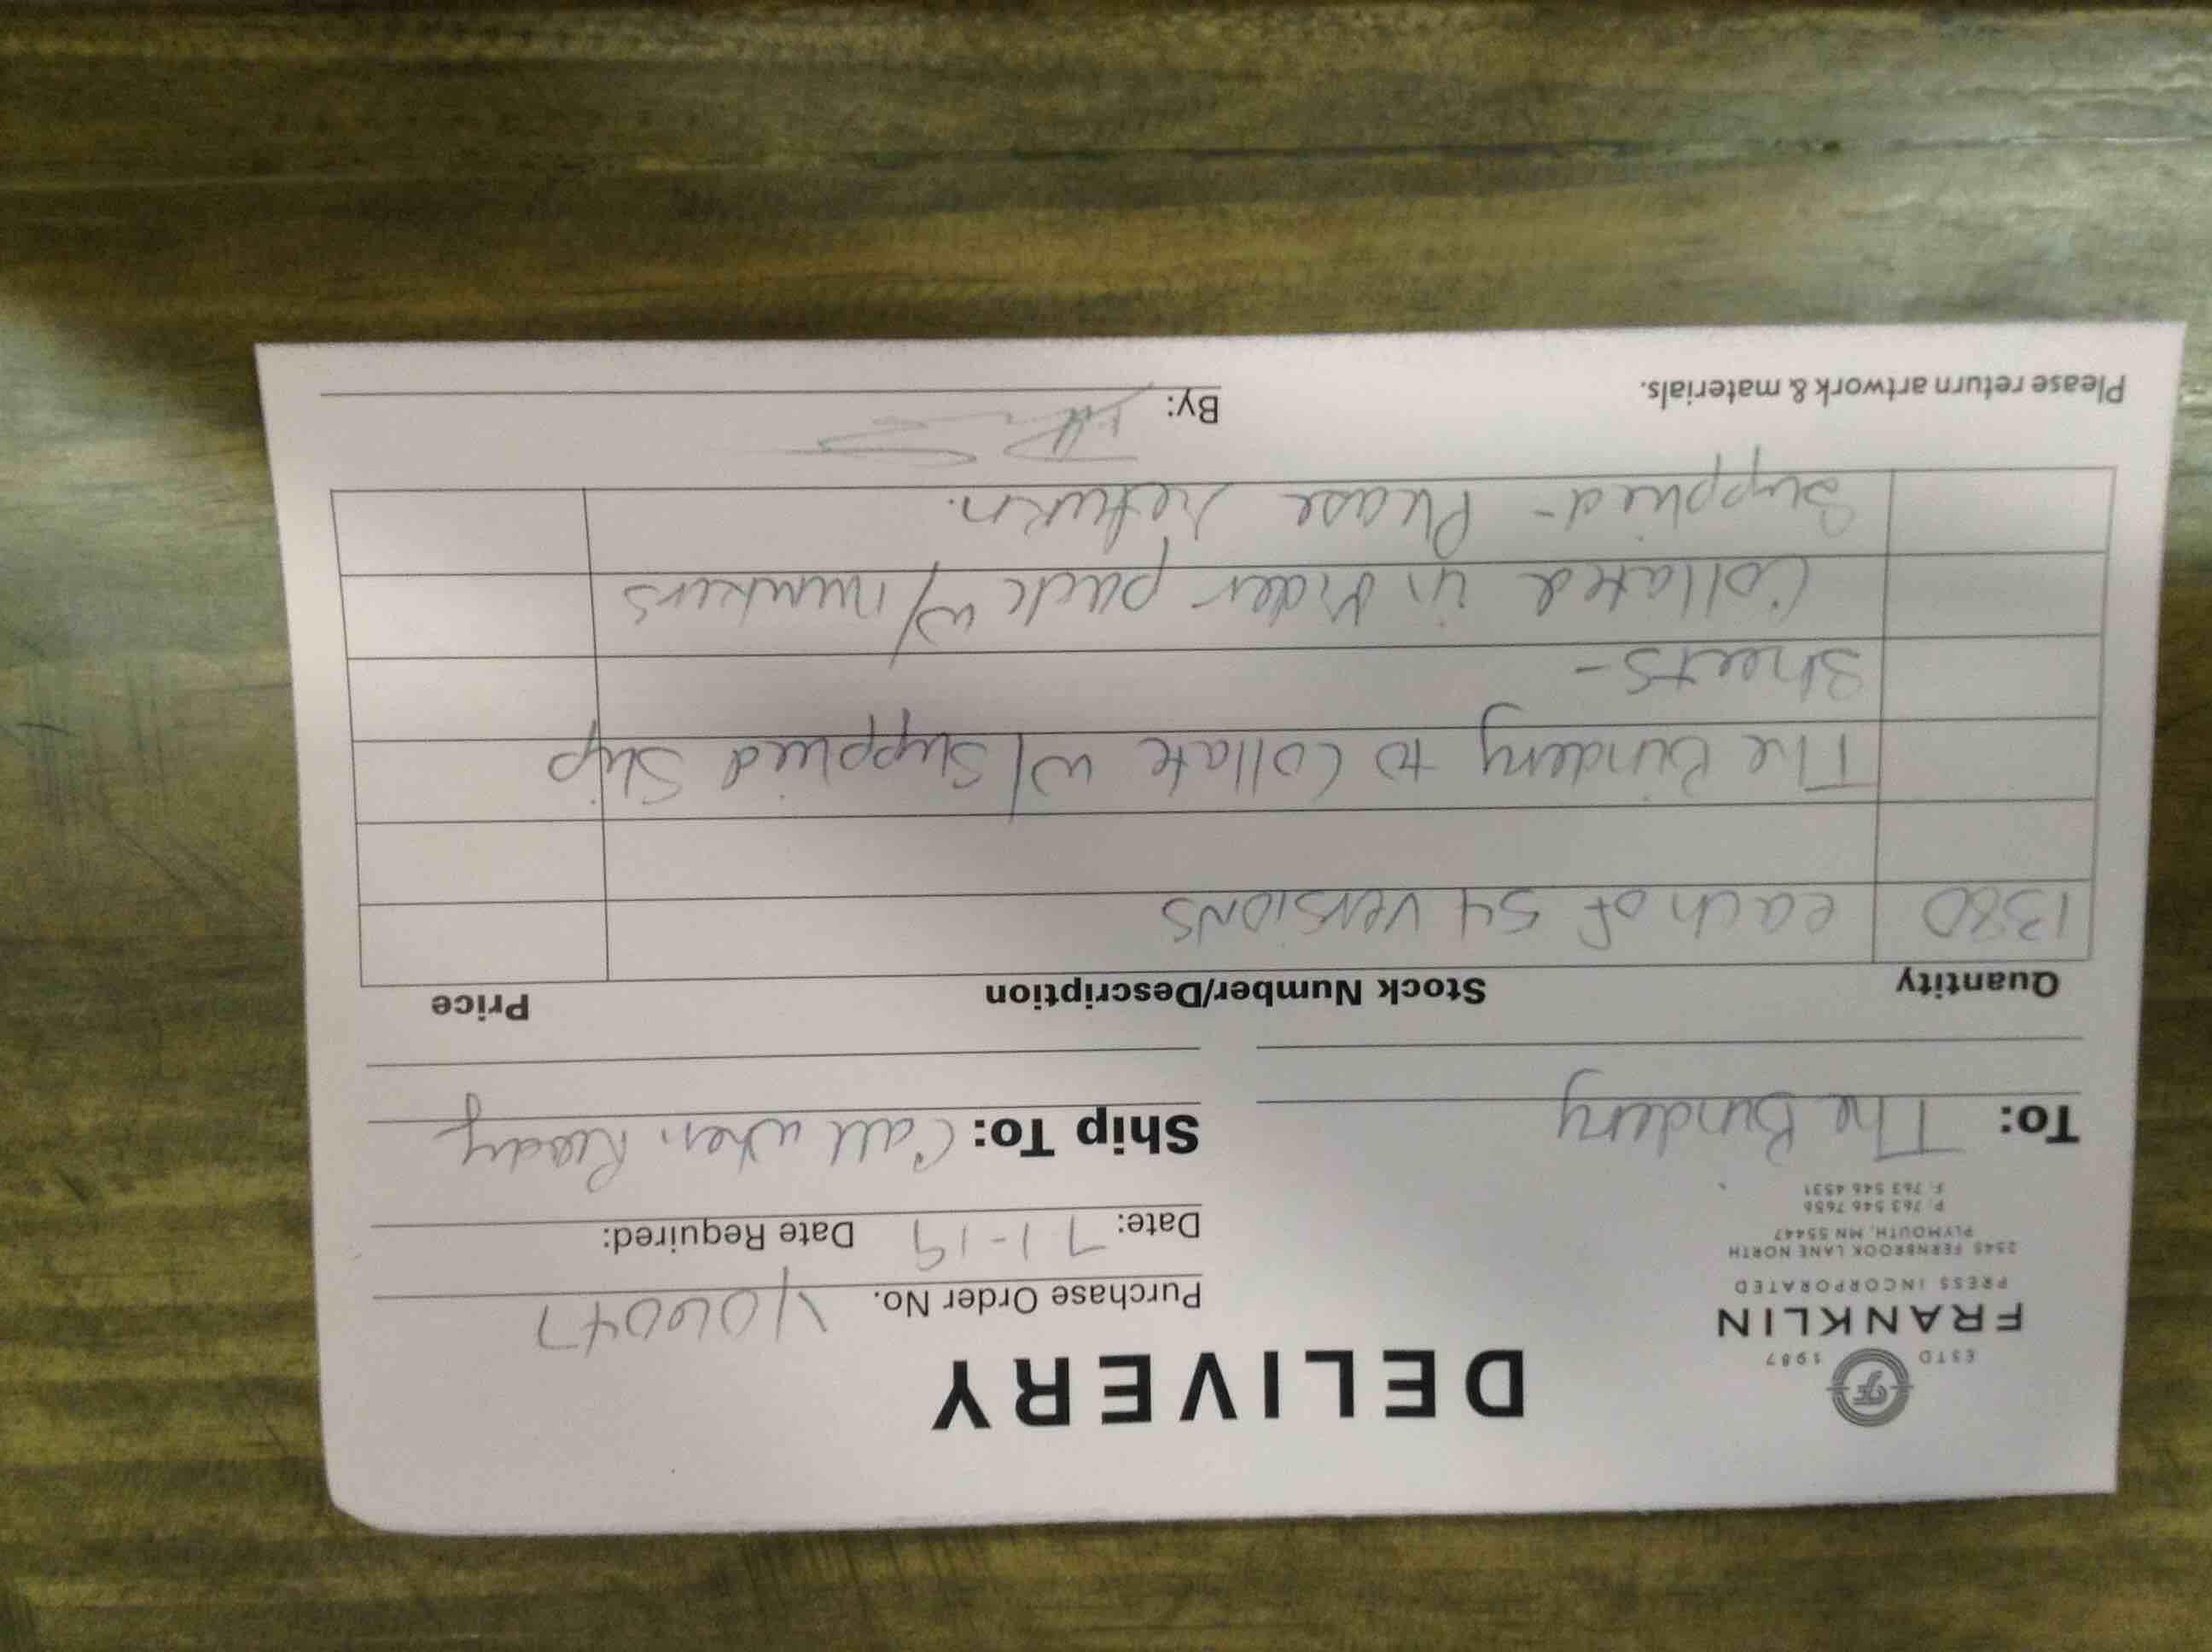 ESTD 1987
FRANKLIN
PRESS INCORPORATED
2545 FERNBROOK LANE NORTH
PLYMOUTH, MN 55447
P. 763 546 7656
F. 763 546 4531
DELIVERY
Purchase Order No. 106047
Date: 7-1-19 Date Required:
To: The Bindery
Ship To: Call when Ready
Quantity Stock Number/Description Price
1380 each of 54 versions
The Bindery to Collate w/ Supplied Slip
Sheets-
Collated in Order pack w/ numbers
Supplied - Please return.
Please return artwork & materials.
By: